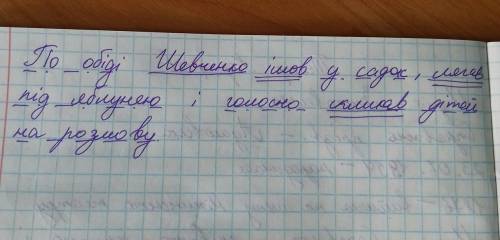 По обіді Шевченко ішов у садок, лягав
під яблунею і голосно скликав дітей
на розмову